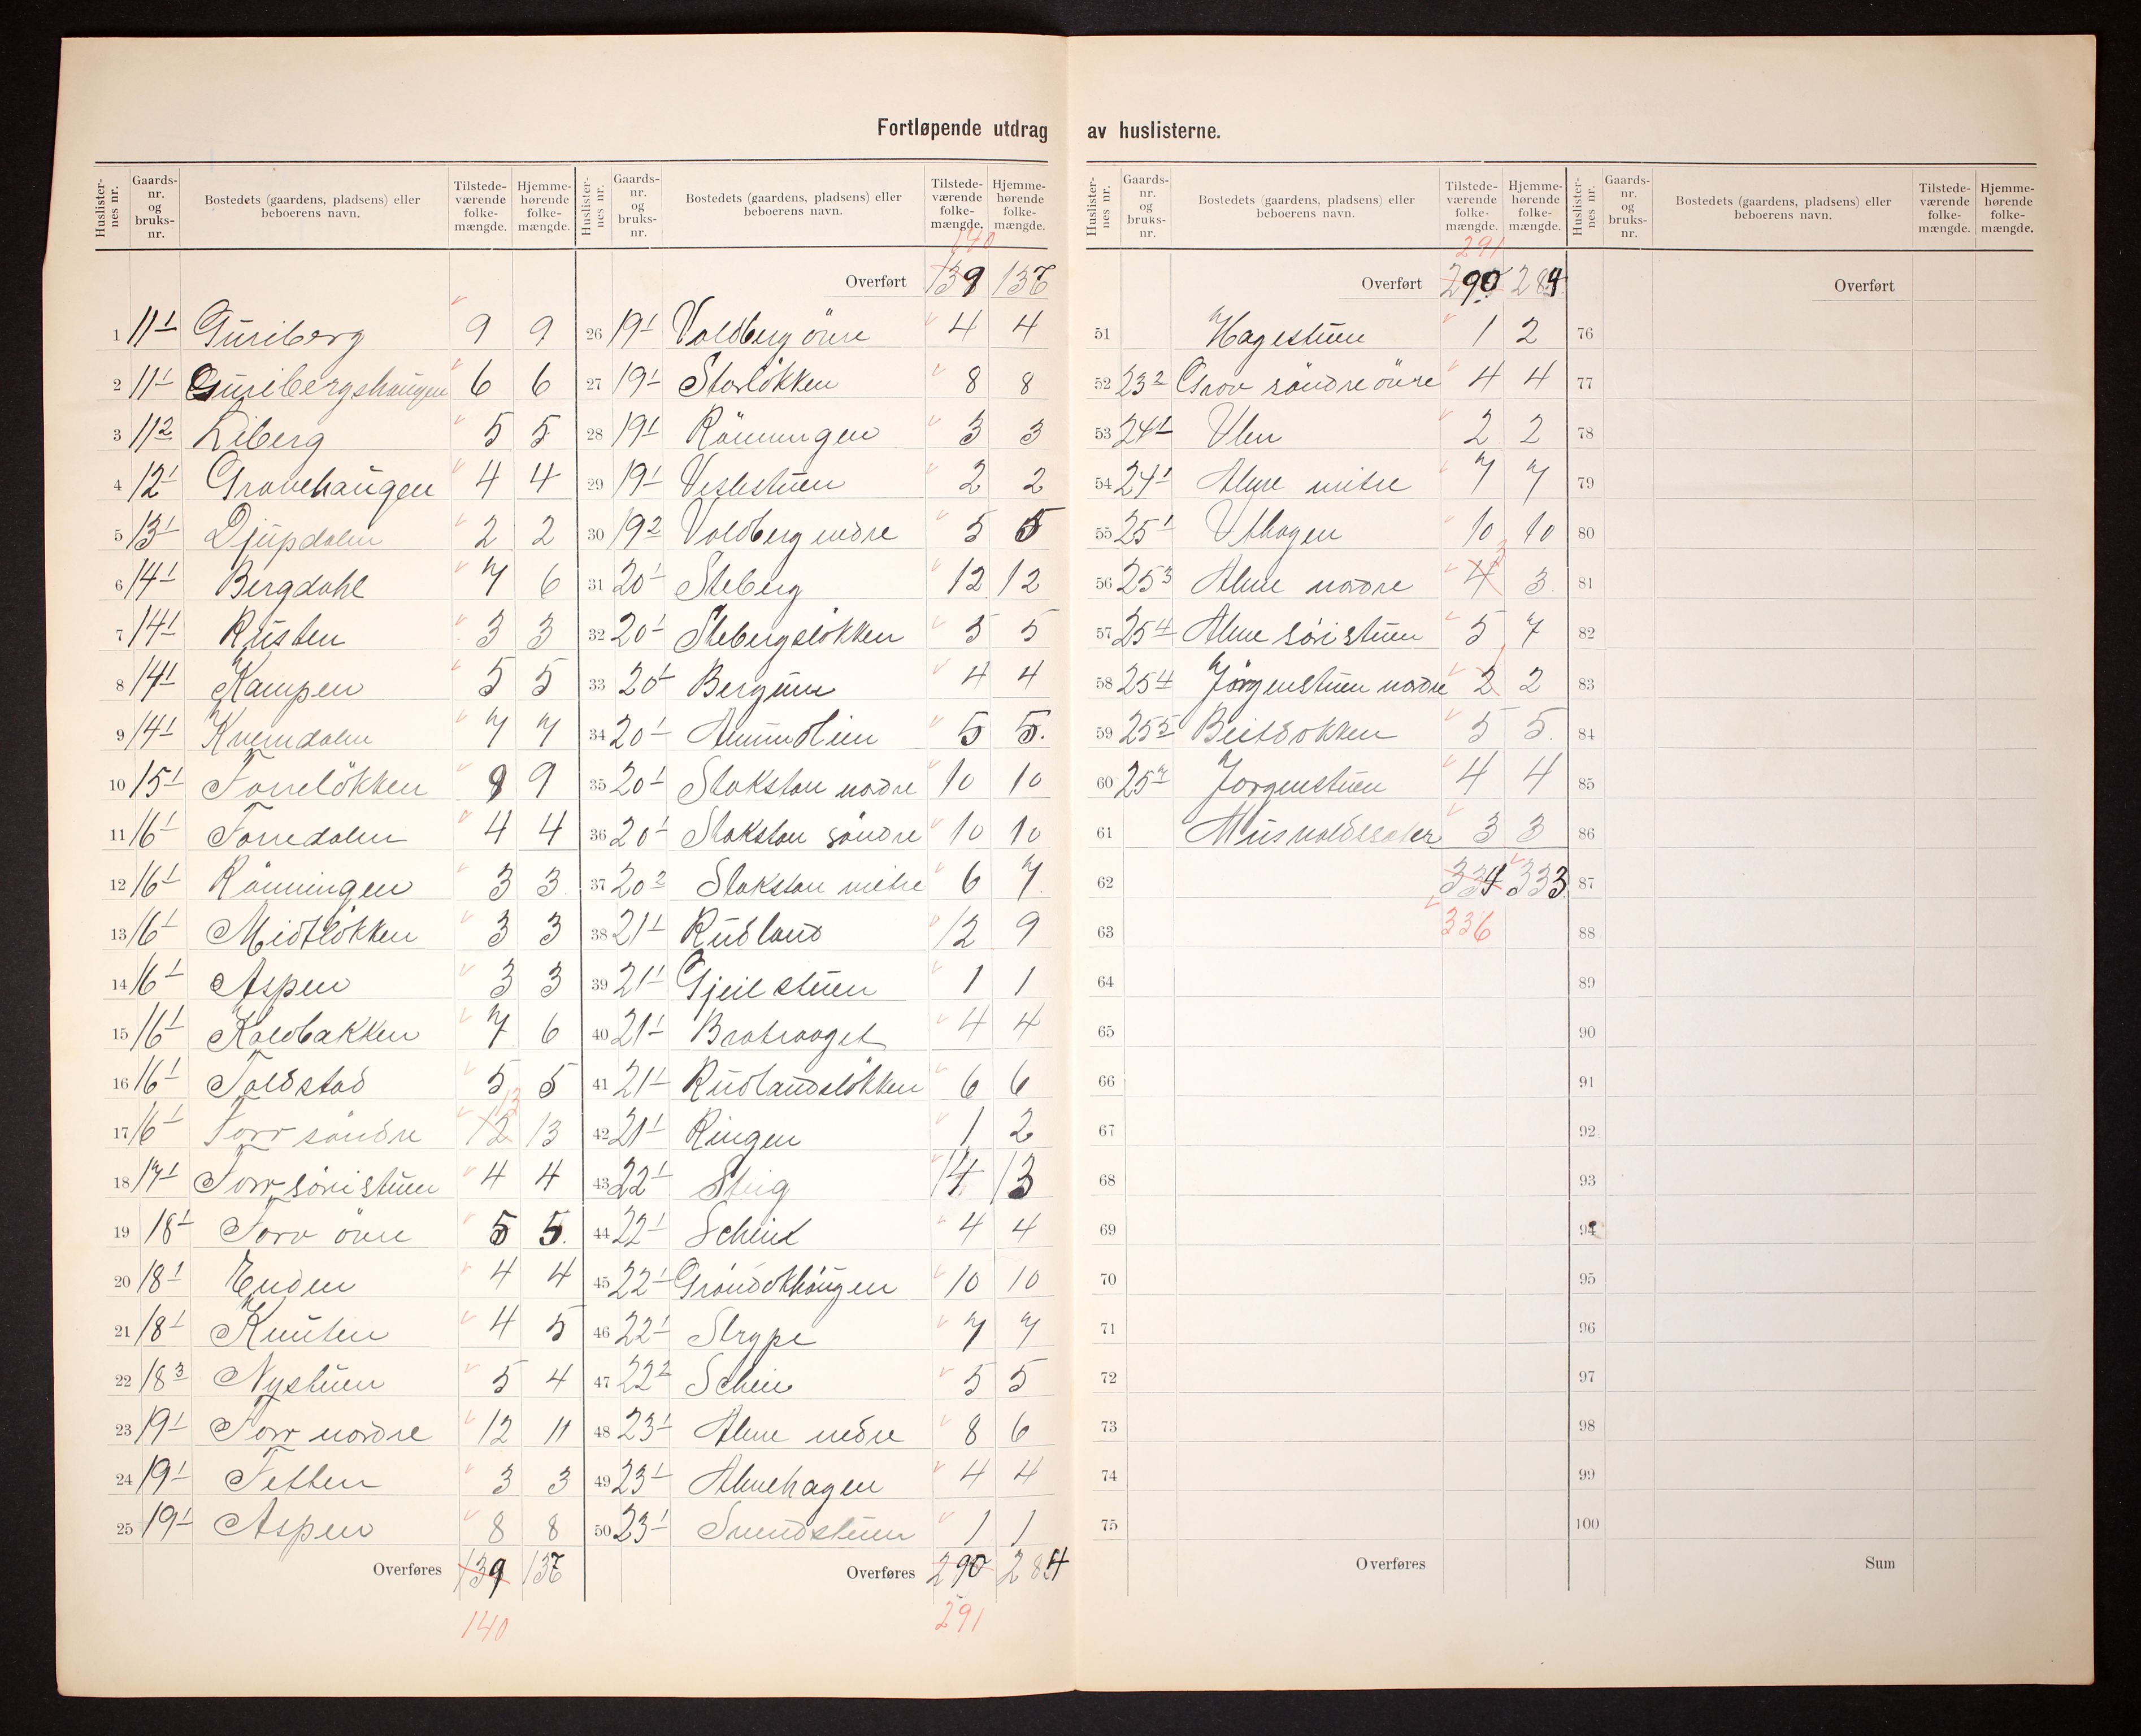 Fortløpende utdrag av huslisterne.
Huslister-nes nr. Gaards-nr. og bruks-nr. Bostedets (gaardens, pladsens) eller beboerens navn. Tilstede-værende folke-mængde. Hjemme-hørende folke-mængde.
1 11 1 Guriberg 9 9
2 11 1 Guribergshaugen 6 6
3 11 2 Liberg 5 5
4 12 1 Gravehaugen 4 4
5 13 1 Djupdalen 2 2
6 14 1 Bergdahl 7 6
7 14 1 Rusten 3 3
8 14 1 Kampen 5 5
9 14 1 Kverndalen 7 7
10 15 1 Torreløkken 8 9
11 16 1 Torredalen 4 4
12 16 1 Rönningen 3 3
13 16 1 Midtløkken 3 3
14 16 1 Aspen 3 3
15 16 1 Koldbakken 7 6
16 16 1 Toldstad 5 5
17 16 1 Torr söndre 12 13 13
18 17 1 Torr söristuen 4 4
19 18 1 Torr övre 5 5
20 18 1 Enden 4 4
21 18 1 Knuten 4 5
22 18 3 Nystuen 5 4
23 19 1 Torr nordre 12 11
24 19 1 Tetten 3 3
25 19 1 Aspen 8 8
Overføres 139 137
140
Huslister-nes nr. Gaards-nr. og bruks-nr. Bostedets (gaardens, pladsens) eller beboerens navn. Tilstede-værende folke-mængde. Hjemme-hørende folke-mængde.
140
Overført 139 137
26 19 1 Voldberg övre 4 4
27 19 1 Storlökken 8 8
28 19 1 Rönningen 3 3
29 19 1 Veslestuen 2 2
30 19 2 Voldberg nedre 5 5
31 20 1 Sleberg 12 12
32 20 1 Slebergslökken 5 5
33 20 1 Bergum 4 4
34 20 1 Amundlien 5 5
35 20 1 Stokstan nordre 10 10
36 20 1 Stokstan söndre 10 10
37 20 2 Stokstan mitre 6 7
38 21 1 Rudland 12 9
39 21 1 Gjeilstuen 1 1
40 21 1 Brotroaget 4 4
41 21 1 Rudlandslökken 6 6
42 21 1 Ringen 1 2
43 22 1 Steig 14 13
44 22 1 4 4
45 22 1 10 10
46 22 1 Strype 7 7
47 22 2 5 5
48 23 1 Alme nedre 8 6
49 23 1 Almehagen 4 4
50 23 1 Svendstuen 1 1
Overføres 290 284
291
Huslister-nes nr. Gaards-nr. og bruks-nr. Bostedets (gaardens, pladsens) eller beboerens navn. Tilstede-værende folke-mængde. Hjemme-hørende folke-mængde.
291
Overført 290 284
51 Hagestuen 1 2
52 23 2 Grov söndre övre 4 4
53 24 1 Ulen 2 2
54 24 1 Alme mitre 7 7
55 25 1 Uthagen 10 10
56 25 3 Alme nordre 4 3 3
57 25 4 Alme söristuen 5 7
58 25 4 Jörgenstuen nordre 2 2
59 25 5 5 5
60 25 7 Jörgenstuen 4 4
61 Musvoldssæter 3 3
62 334 333
63 336
64
65
66
67
68
69
70
71
72
73
74
75
Overføres
Huslister-nes nr. Gaards-nr. og bruks-nr. Bostedets (gaardens, pladsens) eller beboerens navn. Tilstede-værende folke-mængde. Hjemme-hørende folke-mængde.
Overført
76
77
78
79
80
81
82
83
84
85
86
87
88
89
90
91
92
93
94
95
96
97
98
99
100
Sum